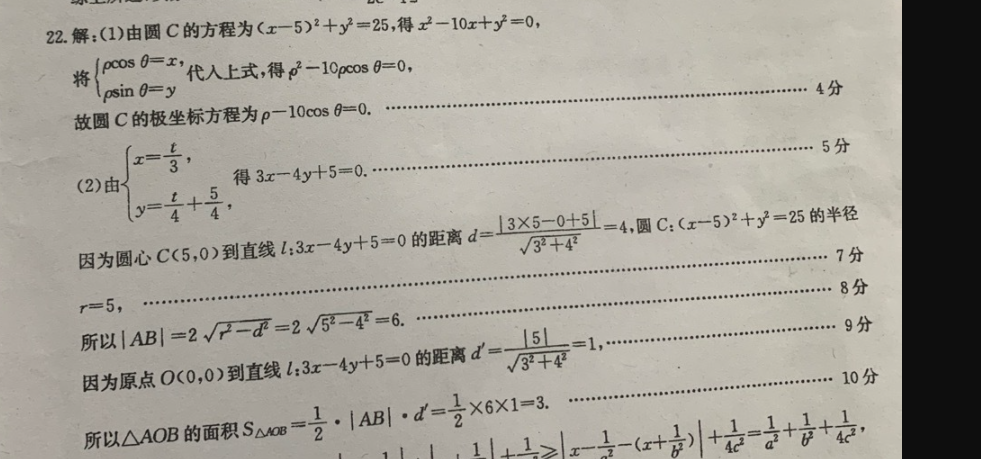 22.解:(1)由圆C的方程为(x-5)²+y²=25,得x²-10x+y²=0,
将{ρcos θ=x, ρsin θ=y 代入上式,得ρ²-10ρcos θ=0,
故圆C的极坐标方程为ρ-10cos θ=0. …… 4分
(2)由{x=t/3, y=t/4+5/4, 得3x-4y+5=0. …… 5分
因为圆心C(5,0)到直线l:3x-4y+5=0的距离d=|3×5-0+5|/√(3²+4²)=4,圆C:(x-5)²+y²=25的半径
r=5, …… 7分
所以|AB|=2√(r²-d²)=2√(5²-4²)=6. …… 8分
因为原点O(0,0)到直线l:3x-4y+5=0的距离d′=|5|/√(3²+4²)=1, …… 9分
所以△AOB的面积S△AOB=1/2·|AB|·d′=1/2×6×1=3. …… 10分
≥|x-1/a²-(x+1/b²)|+1/4c²=1/a²+1/b²+1/4c²,